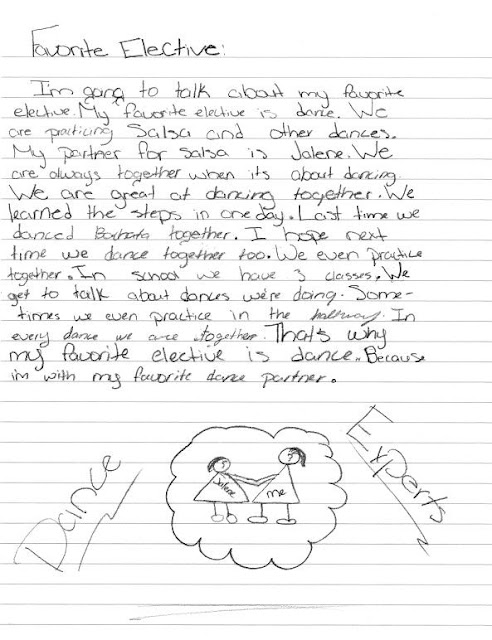 Favorite Elective:
I'm gong to talk about my favorite
elective. My favorite elective is dance. We
are practicing Salsa and other dances.
My partner for salsa is Jalene. We
are always together when its about dancing.
We are great at dancing together. We
learned the steps in one day. Last time we
danced Bachata together. I hope next
time we dance together too. We even practice
together. In school we have 3 classes. We
get to talk about dances we're doing. Some-
times we even practice in the hallway. In
every dance we are together. That's why
my favorite elective is dance. Because
i'm with my favorite dance partner.
Dance
Jalene
me
Experts